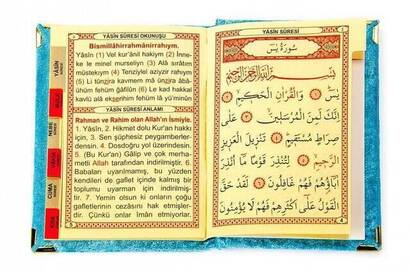 YÂSÎN SÛRESİ OKUNUŞU
Bismillâhirrahmânirrahıym.
YÂSÎN (1) Vel kur'ânil hakiym (2) İnne-
ke le minel murseliyn (3) Alâ sırâtım
müstekıym (4) Tenziylel aziyzir rahıym
(5) Li tünzira kavmem mâ ünzira âbâ-
ühüm fehüm ğâfilûn (6) Le kad hakkal
kavlü alâ ekserihim fehüm lâ yü'minûn
YÂSÎN SÛRESİ ANLAMI
Rahman ve Rahim olan Allah'ın İsmiyle.
1. Yâsîn, 2. Hikmet dolu Kur'an hakkı
için, 3. Sen şüphesiz peygamberler-
densin. 4. Dosdoğru yol üzerindesin.
5. (Bu Kur'an) Gâlip ve çok merha-
metli Allah tarafından indirilmiştir. 6.
Babaları uyarılmamış, bu yüzden
kendileri de gaflet içinde kalmış bir
toplumu uyarman için indirilmiş-
tir. 7. Yemin olsun ki onların çoğu
gafletlerinin cezasını hak etmişler-
dir. Çünkü onlar îmân etmiyorlar.
YÂSÎN
CUMA
YÂSÎN SÛRESİ
سُورَةُ يٰسٓ
بِسْمِ اللّٰهِ الرَّحْمٰنِ الرَّحِيمِ
يٰسٓ ﴿١﴾ وَالْقُرْاٰنِ الْحَكِيمِ ﴿٢﴾
اِنَّكَ لَمِنَ الْمُرْسَلِينَ ﴿٣﴾ عَلٰى
صِرَاطٍ مُسْتَقِيمٍ ﴿٤﴾ تَنْزِيلَ الْعَزِيزِ
الرَّحِيمِ ﴿٥﴾ لِتُنْذِرَ قَوْمًا مَٓا اُنْذِرَ
اٰبَٓاؤُهُمْ فَهُمْ غَافِلُونَ ﴿٦﴾ لَقَدْ حَقَّ
الْقَوْلُ عَلٰٓى اَكْثَرِهِمْ فَهُمْ لَا يُؤْمِنُونَ